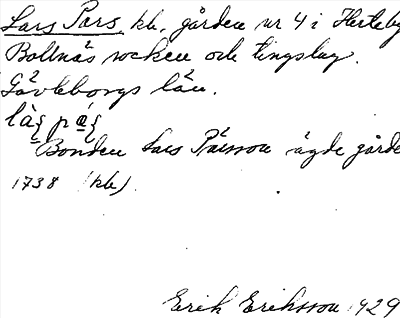 Lars Pärs kb, gården nr 4 i Herteby
Bollnäs socken och tingslag.
Gävleborgs län.
Bonden Lars Pärsson ägde gårde
1738 (kb)
Erik Eriksson 1929